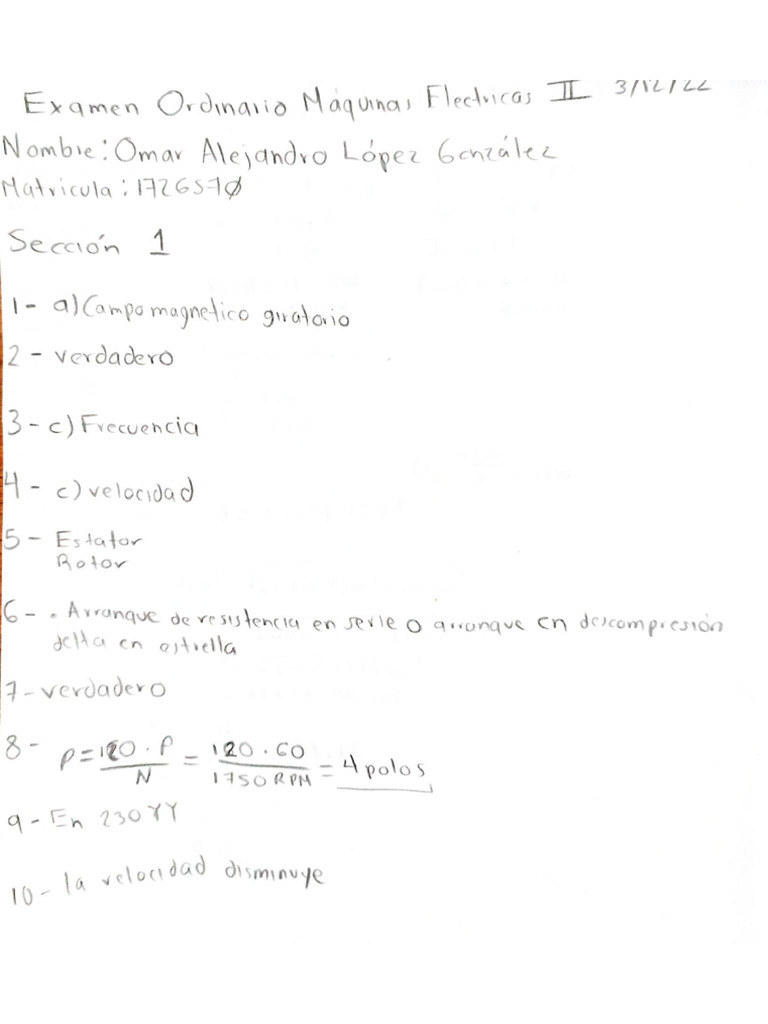 Examen Ordinario Máquinas Electricas II 3/12/22
Nombre: Omar Alejandro López González
Matricula: 1726570
Sección 1
1- a) Campo magnetico giratorio
2 - verdadero
3 - c) Frecuencia
4 - c) velocidad
5 - Estator
Rotor
6 - . Arranque de resistencia en serie o arranque en descompresión
delta en estrella
7 - verdadero
8 - P = 120 . f / N = 120 . 60 / 1750 RPM = 4 polos
9 - En 230 YY
10 - la velocidad disminuye